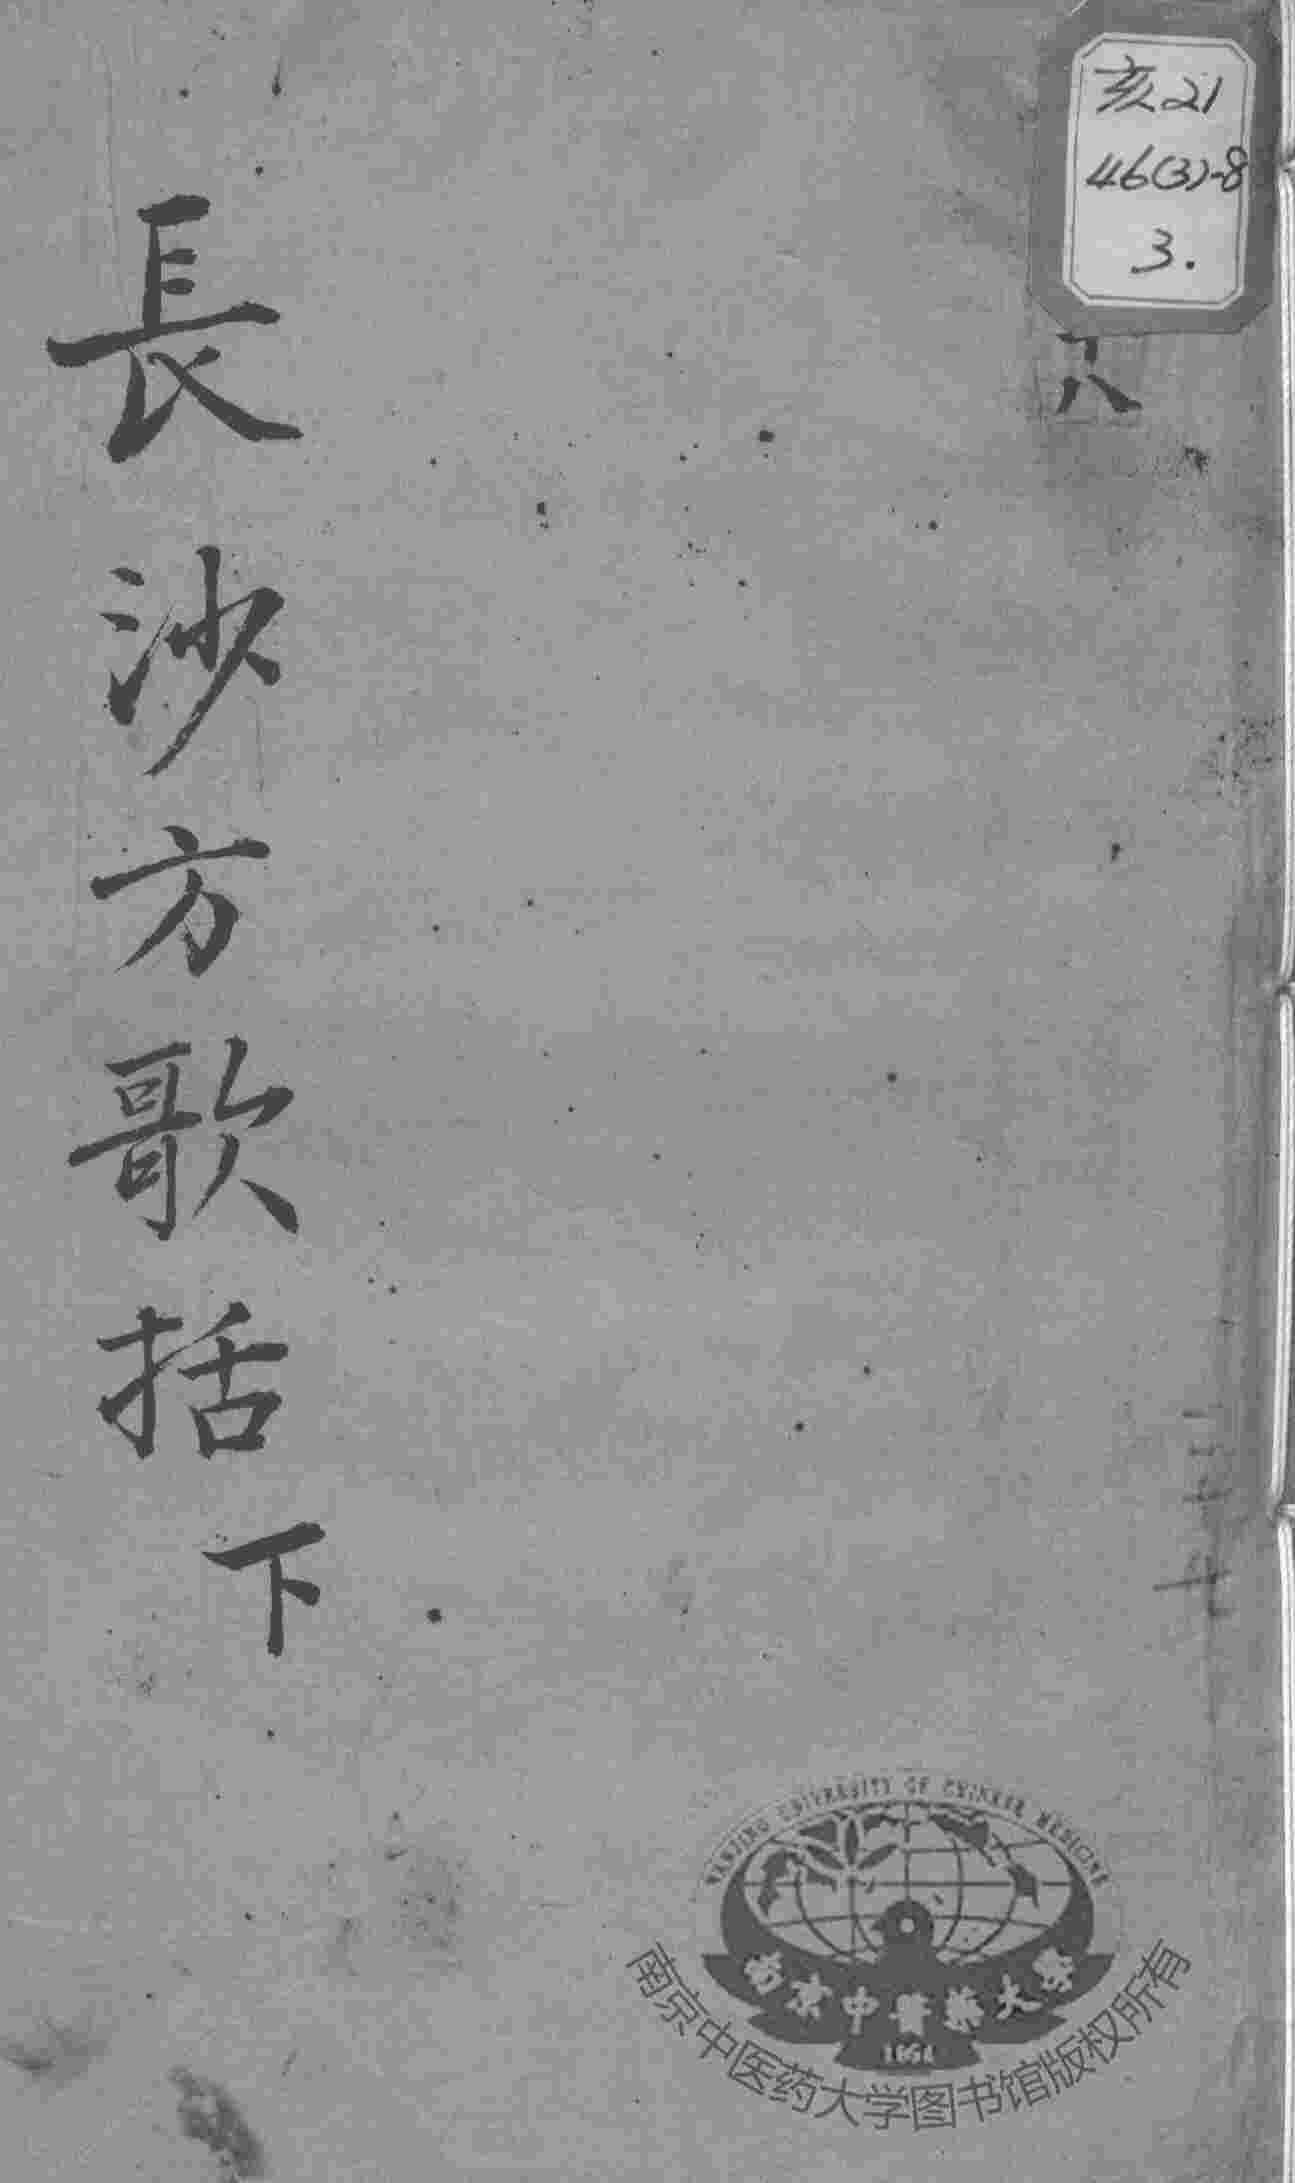 亥21
46(3)-8
3.
八
長沙方歌括下
NANJING UNIVERSITY OF CHINESE MEDICINE
南京中醫藥大學
1954
南京中医药大学图书馆版权所有